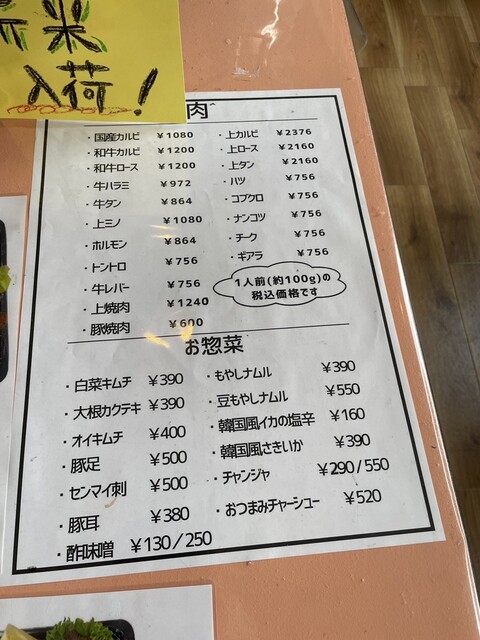 米
入荷!
肉
・国産カルビ ¥1080
・和牛カルビ ¥1200
・和牛ロース ¥1200
・牛ハラミ ¥972
・牛タン ¥864
・上ミノ ¥1080
・ホルモン ¥864
・トントロ ¥756
・牛レバー ¥756
・上焼肉 ¥1240
・豚焼肉 ¥600
・上カルビ ¥2376
・上ロース ¥2160
・上タン ¥2160
・ハツ ¥756
・コブクロ ¥756
・ナンコツ ¥756
・チーク ¥756
・ギアラ ¥756
1人前(約100g)の
税込価格です
お惣菜
・白菜キムチ ¥390
・大根カクテキ ¥390
・オイキムチ ¥400
・豚足 ¥500
・センマイ刺 ¥500
・豚耳 ¥380
・酢味噌 ¥130/250
・もやしナムル ¥390
・豆もやしナムル ¥550
・韓国風イカの塩辛 ¥160
・韓国風さきいか ¥390
・チャンジャ ¥290/550
・おつまみチャーシュー ¥520